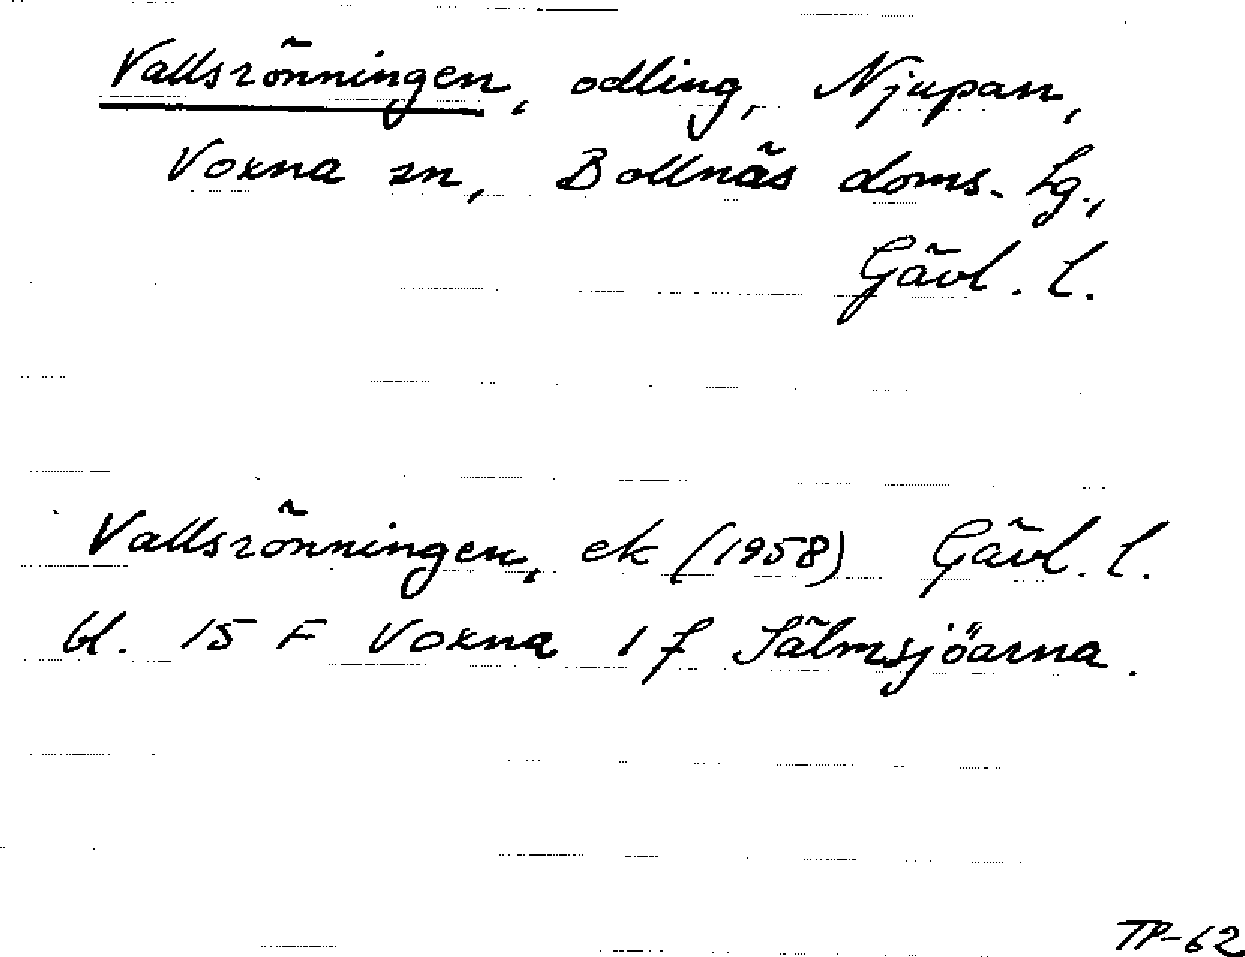 Vallsrönningen, odling, Njupan,
Voxna sn, Bollnäs doms. hg.,
Gävl. l.
Vallsrönningen, ek (1958) Gävl. l.
bl. 15 F Voxna 1 f Sälmsjöarna.
TP-62